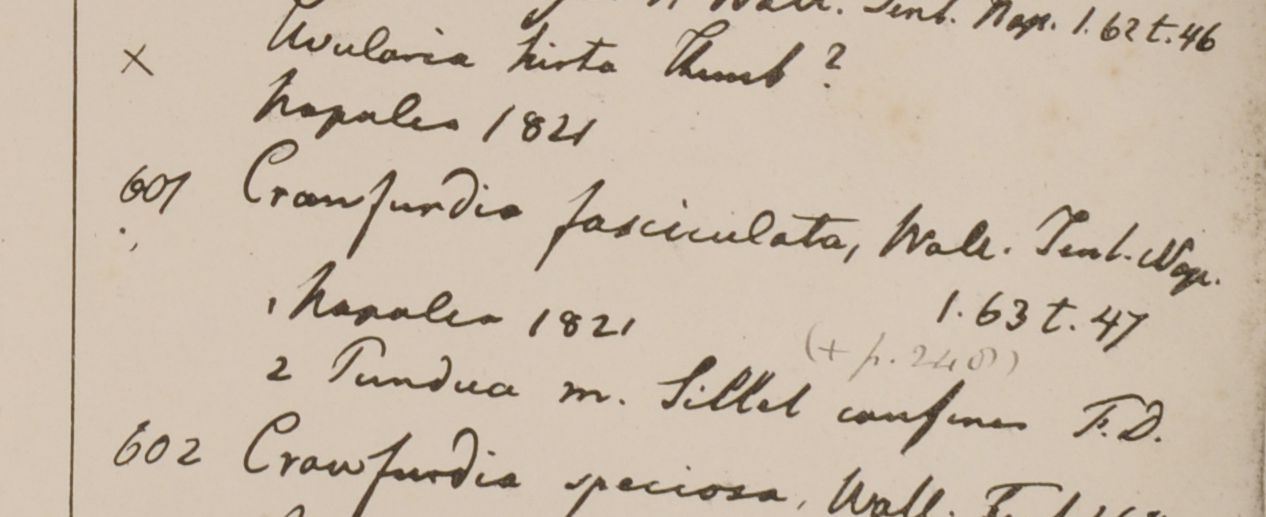 Wall. Tent. Nap. 1. 62 t. 46
× Uvularia hirta Thunb ?
Napalia 1821
601 Crawfurdia fasciculata, Wall. Tent. Nap.
1. 63 t. 47
1 Napalia 1821
(+ p. 248)
2 Pundua m. Sillet confines F.D.
602 Crawfurdia speciosa, Wall.